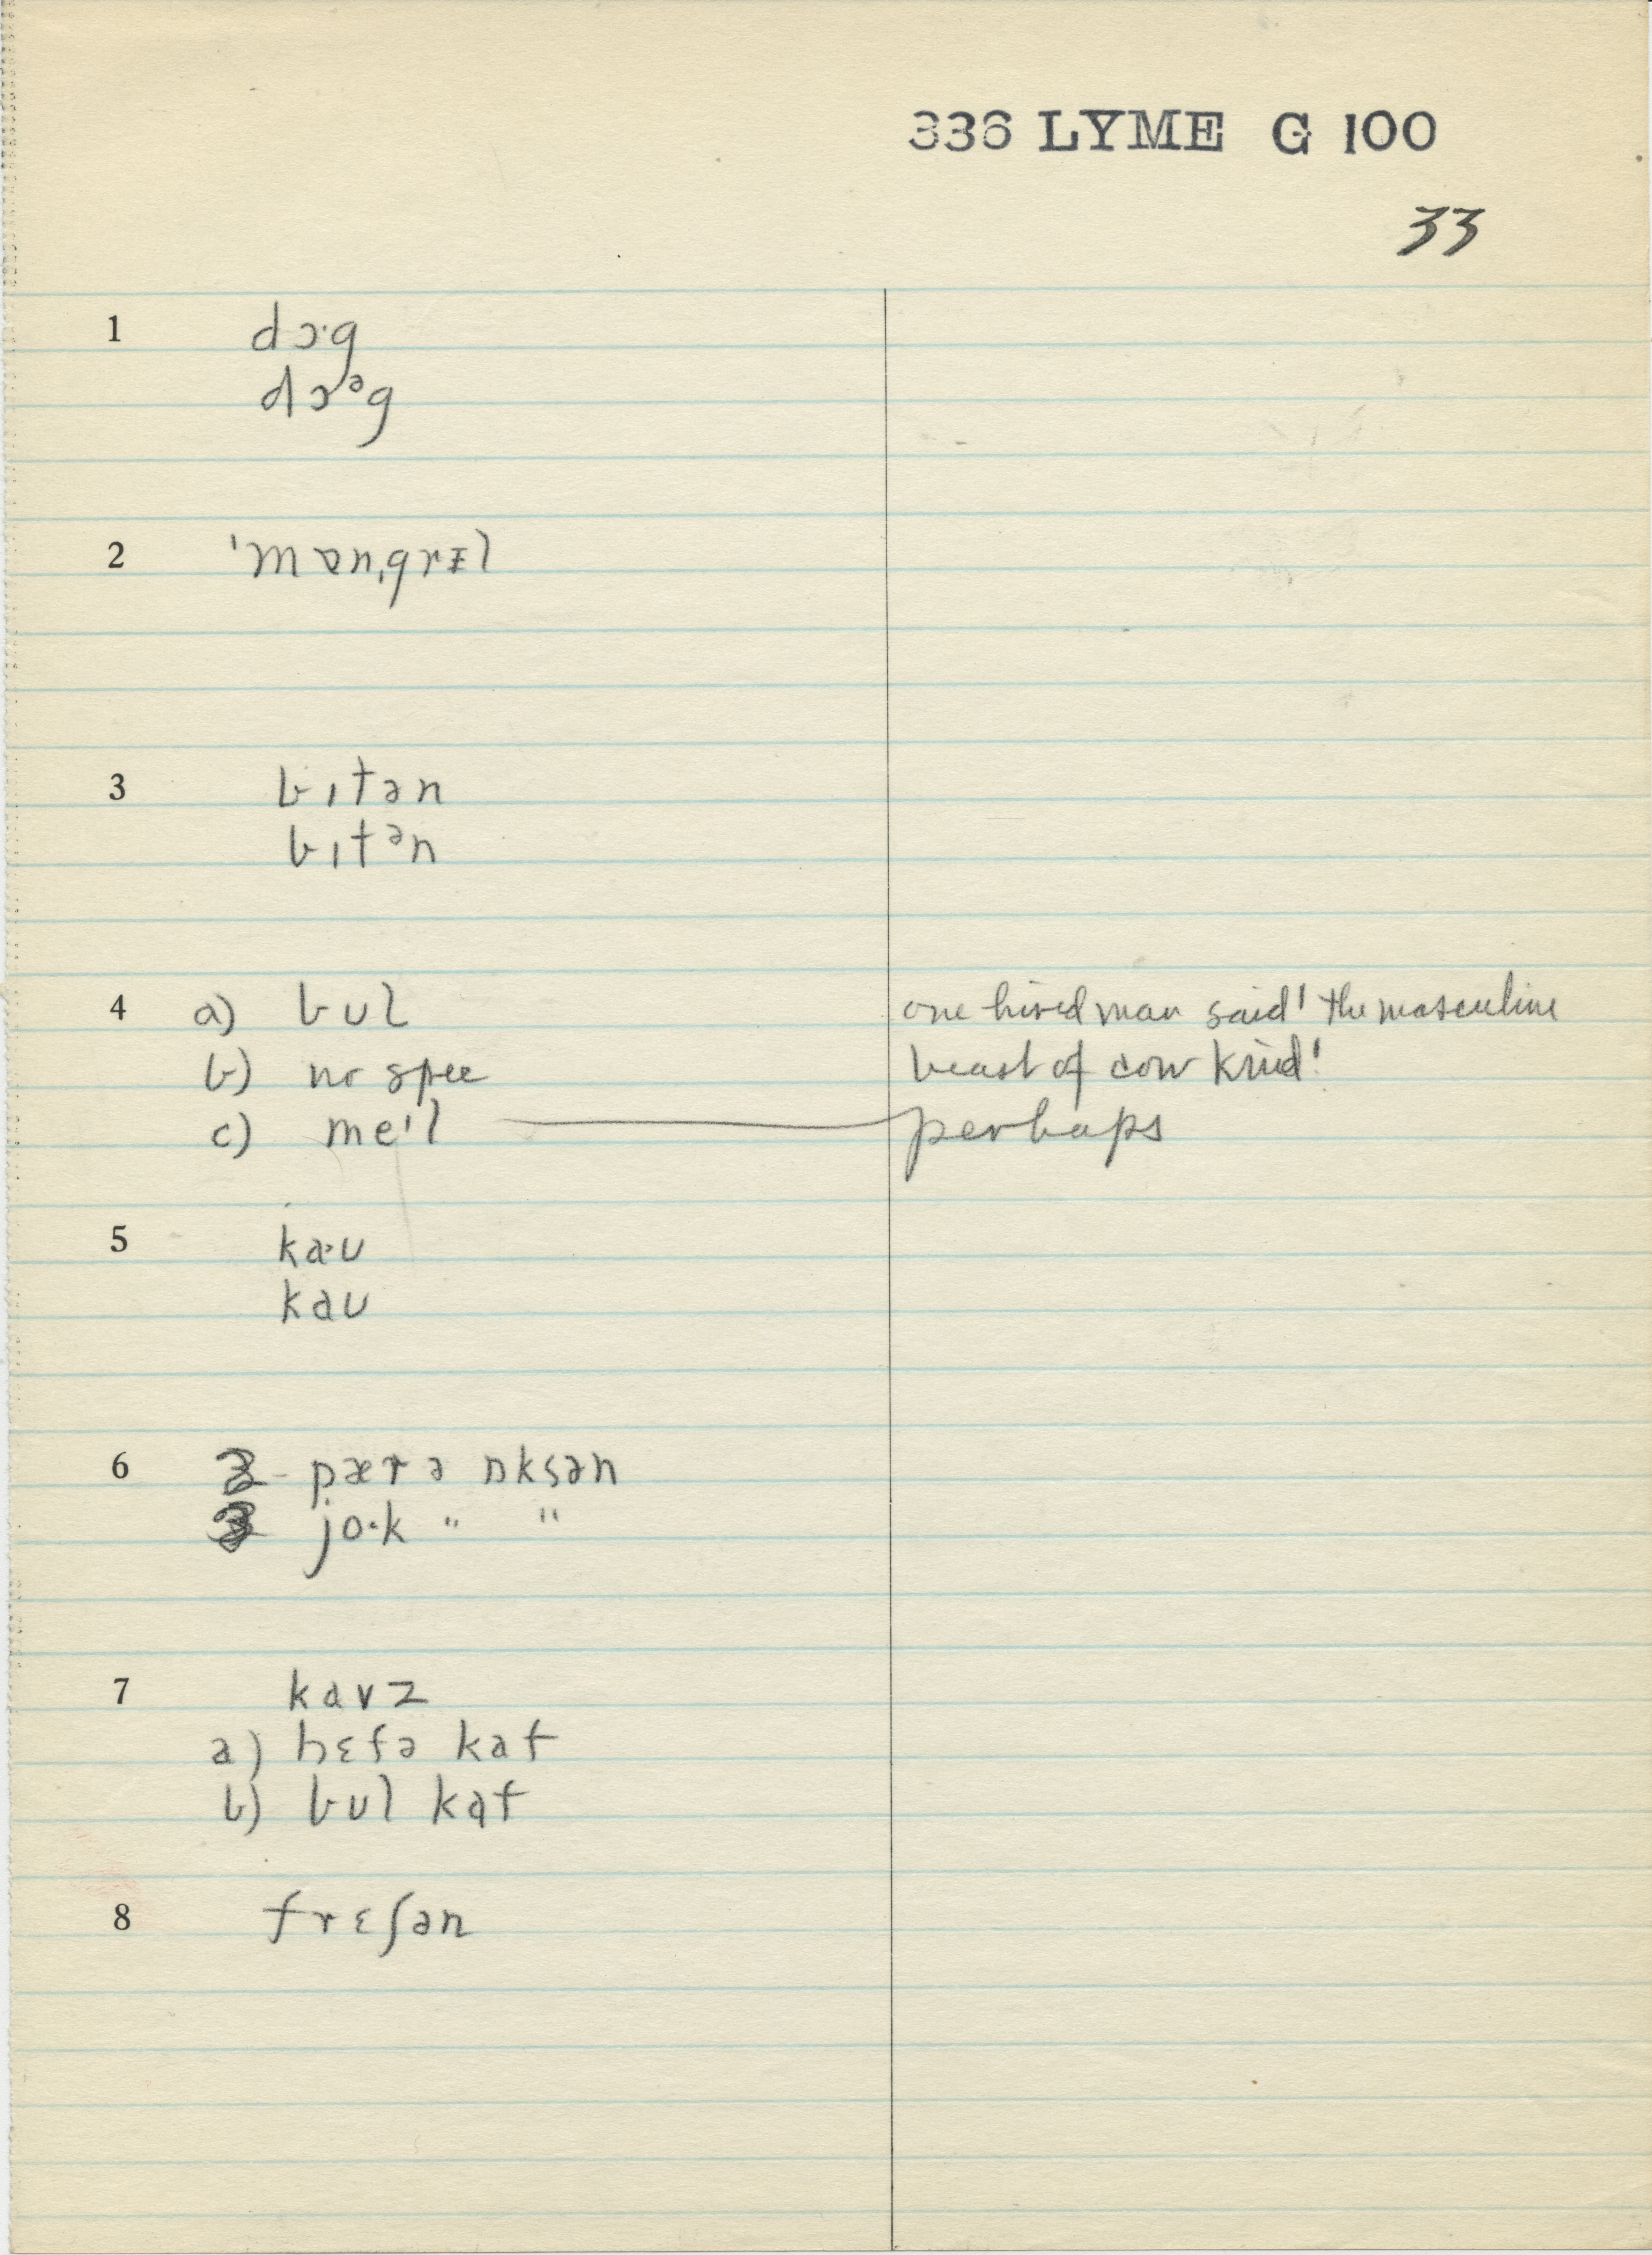 336 LYME G 100
33
1 dɔ·g
dɔᵊg
2 ˈmɒnˌgrɪl
3 bɪtən
bɪtᵊn
4 a) bul one hired man said 'the masculine
b) no spec beast of cow kind'
c) meˈl perhaps
5 ka·u
kau
6 2 - pærə ɒksən
3 jo·k " "
7 kavz
a) hɛfə kaf
b) bul kaf
8 frɛʃən